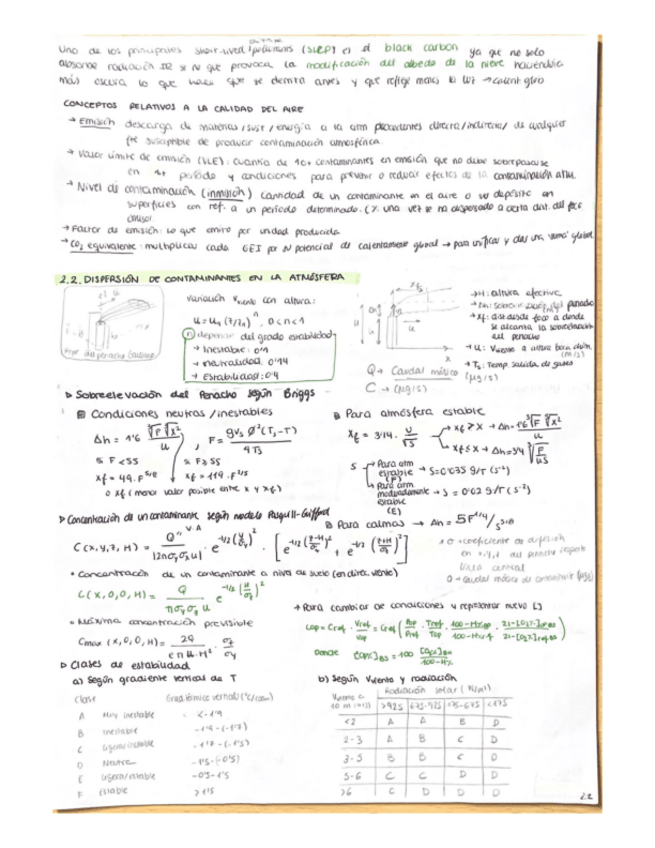 Uno de los principales short-lived pollutants (SLCP) es el black carbon ya que no solo
absorbe radiación IR si no que provoca la modificación del albedo de la nieve haciéndola
más oscura lo que hace que se derrita antes y que refleje menos la luz →
CONCEPTOS RELATIVOS A LA CALIDAD DEL AIRE
→ Emisión descarga de materias/sust/energía a la atm procedentes directa/indirecta/ de cualquier
fte susceptible de producir contaminación atmosférica.
→ Valor límite de emisión (VLE): cuantía de 1 o + contaminantes en emisión que no debe sobrepasarse
en 1 o + período y condiciones para prevenir o reducir efectos de la contaminación atm.
→ Nivel de contaminación (inmisión) cantidad de un contaminante en el aire o su depósito en
superficies con ref. a un período determinado. ( una vez se ha dispersado a cierta dist. del foco
emisor
→ Factor de emisión: lo que emito por unidad producida
→ CO2 equivalente: multiplicar cada GEI por su potencial de calentamiento global → para unificar y dar una "suma" global
2.2. DISPERSIÓN DE CONTAMINANTES EN LA ATMÓSFERA
Variación Vviento con altura:
u = u1 (z/z1)^n, 0<n<1
n depende del grado estabilidad
→ Inestable: 0'1
→ neutralidad: 0'14
→ Estabilidad: 0'4
→ H: altura efectiva
→ Δh: sobreelevación del penacho (m)
→ xf: dist desde foco a donde
se alcanza la sobreelevación
del penacho
→ u: Vviento a altura boca chim. (m/s)
→ Ts: Temp salida de gases
Q → Caudal másico (µg/s)
C → (µg/s)
▷ Sobreelevación del Penacho según Briggs
Condiciones neutras / inestables
Δh = 1'6 ∛F ∛x² / u , F = g Vs Ø² (Ts-T) / 4Ts
Si F<55 Si F≥55
xf = 49·F^5/8 xf = 119·F^2/5
o xf (menor valor posible entre x y xf)
Para atmósfera estable
xf = 3'14 · u/√S → xf > x → Δh = 1'6 ∛F ∛x² / u
→ xf ≤ x → Δh = 3/4 ∛F/uS
S → Para atm estable (F) → S = 0'035 g/T (s⁻²)
→ Para atm moderadamente estable (E) → S = 0'02 g/T (s⁻²)
▷ Concentración de un contaminante según modelo Pasquill-Gifford
Para calmas → Δh = 5 F^1/4 / S^3/8
C(x,y,z,H) = Q / (2πσyσz u) · e^-1/2(y/σy)² · [e^-1/2((z-H)/σz)² + e^-1/2((z+H)/σz)²]
σ = coeficiente de dispersión
en x,y, del penacho respecto
línea central
Q → caudal másico de contaminante (µg/s)
• Concentración de un contaminante a nivel de suelo (en direc. viento)
C(x,0,0,H) = Q / (πσyσz u) e^-1/2(H/σz)²
• Máxima concentración previsible
Cmax (x,0,0,H) = 2Q / (e π u · H²) · σz/σy
→ Para cambiar de condiciones y representar nuevo [ ]
Donde
▷ Clases de estabilidad
a) Según gradiente vertical de T
Clase Grad. térmico vertical (°C/100m)
A Muy inestable < -1'9
B Inestable -1'9 - (-1'7)
C Ligera/inestable -1'7 - (-1'5)
D Neutra -1'5 - (-0'5)
E Ligera/estable -0'5 - 1'5
F Estable > 1'5
b) Según Vviento y radiación
Radiación solar (W/m²)
Vviento a 10 m (m/s) >925 675-925 175-675 <175
<2 A A B D
2-3 A B C D
3-5 B B C D
5-6 C C D D
>6 C D D D
2.2